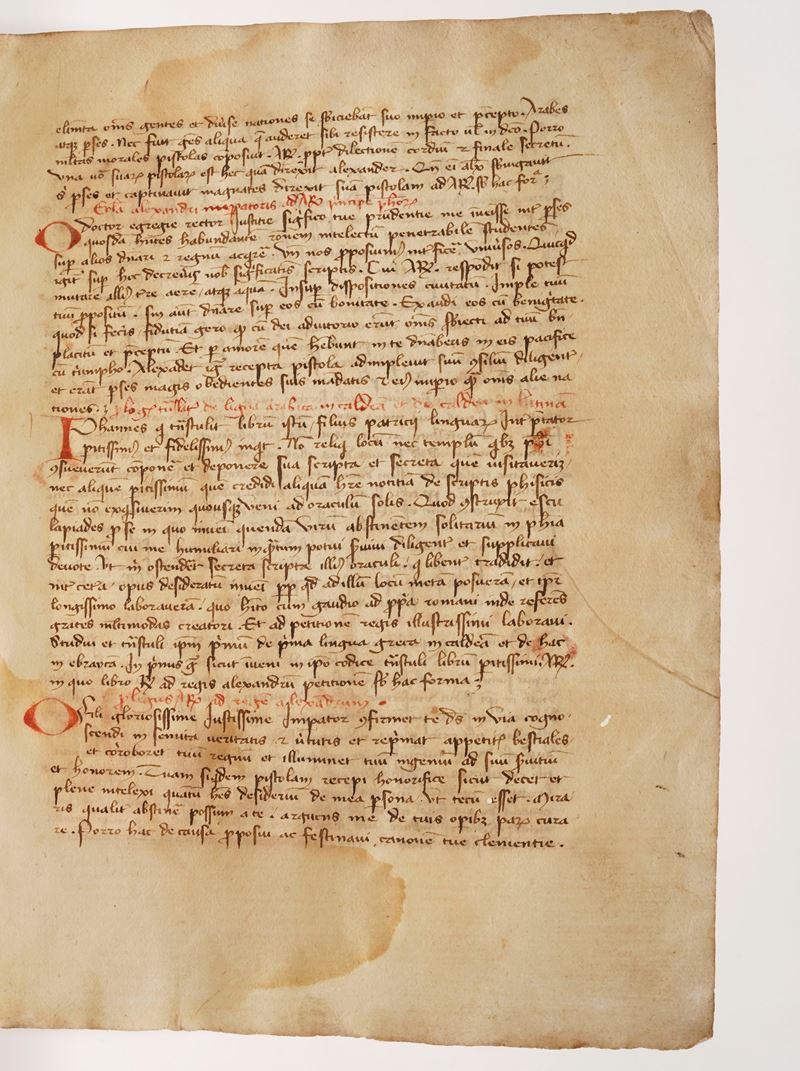 oms gentes et diuse nationes se sbiciebat suo impio et pcepto. Arabes
atqz pses. Nec fuit ges aliqua q auderet sibi resistere in facto ul in dco. Porro
mltas morales pistolas coposuit. AR. ppt dilectione cordiu z finale secretu.
una u suaru pistolaru est hec qua direxit alexander. Qn ei alx sbiugauit
s pses et captiuauit magnates direxit sua pistolam ad AR. sb hac for
Epla alexandri impatoris ad AR pncipe phoru
O doctor egregie rector iustitie sigfico tue prudentie me ineisse int pses
quosda hntes habundante ronem intelectu penetrabile studentes
sup alios dnari z regnu acqre. Vn nos pposuim intficere uniusos. Quicqd
igit sup hoc decreuis nob sigficatis scriptis. Cui AR. respodit si potes
mutare illi tre aere, atqz aqua. Insup dispositiones ciuitatu. Imple tuu
tuu ppositu. sin aut dnare sup eos cu bonitate. Exaudi eos cu benigtate.
quod si fecis, fidutia gero qp cu dei adiutorio erut oms sbiecti ad tuu bn
placitu et pceptu. Et p amore que hebunt in te dnaberis in eis pacifice
cu triumpho. Alexadet recepta pistola adimpleuit suu csiliu diligent
et erat pses magis obedientes suis madatis z ei impio qp oms alie na
tiones. plog tnslit de ligua arabica in caldea et de caldea in latina
Iohannes q tnstulit libru istu, filius patricii linguaru intptator
pitissim et fidelissim inqt. No reliq locu nec templu qbz phi
csueuerut coponere et deponere sua scripta et secreta que uisitaueri
nec alique pitissimu que credidi aliqua hre notitia de scriptis phisicis
que no exqsiuerim quousqz ueni ad oraculu solis. Quod cstruxit escu
lapiades p se in quo inueni quenda uiru abstinetem solitariu in phia
pitissimu cui me humiliaui inqtum potui suiui diligent et supplicaui
deuote. Vt m ostenderet secreta scripta illi oraculi. q libent tradidit. et
int cetera, opus desideratu inueni pp qd ad illu locu meta posuera, et tpr
longissimo laborauera. quo hito cum gaudio ad ppa romaui inde referes
grates mltimodas creatori. Et ad petitione regis illustrissimi laboraui.
Studui et tnstuli ipm pmu de pma lingua greca in caldea et de hac
in ebrayca. In pmis g sicut iueni in ipo codice tnstuli libru pitissimi AR.
in quo libro ad regis alexandru petitione sb hac forma
plogus AR ad rege alexadrum
O Fili gloriosissime Iustissime Impator cfirmet te ds in uia cogno
scendi in semita ueritatis z ututis et repmat appetit bestiales
et coroboret tuu regnu et illuminet tuu ingeniu ad suu suitiu
et honorem. Tuam siqdem pistolam recepi honorifice sicut decet et
plene intelexi quatu hes desideriu de mea psona. ut tecu esset. Mira
ris qualit abstine possum a te. arguens me de tuis opibz paru cura
re. Porro hac de causa pposui ac festinaui canone tue clementie.